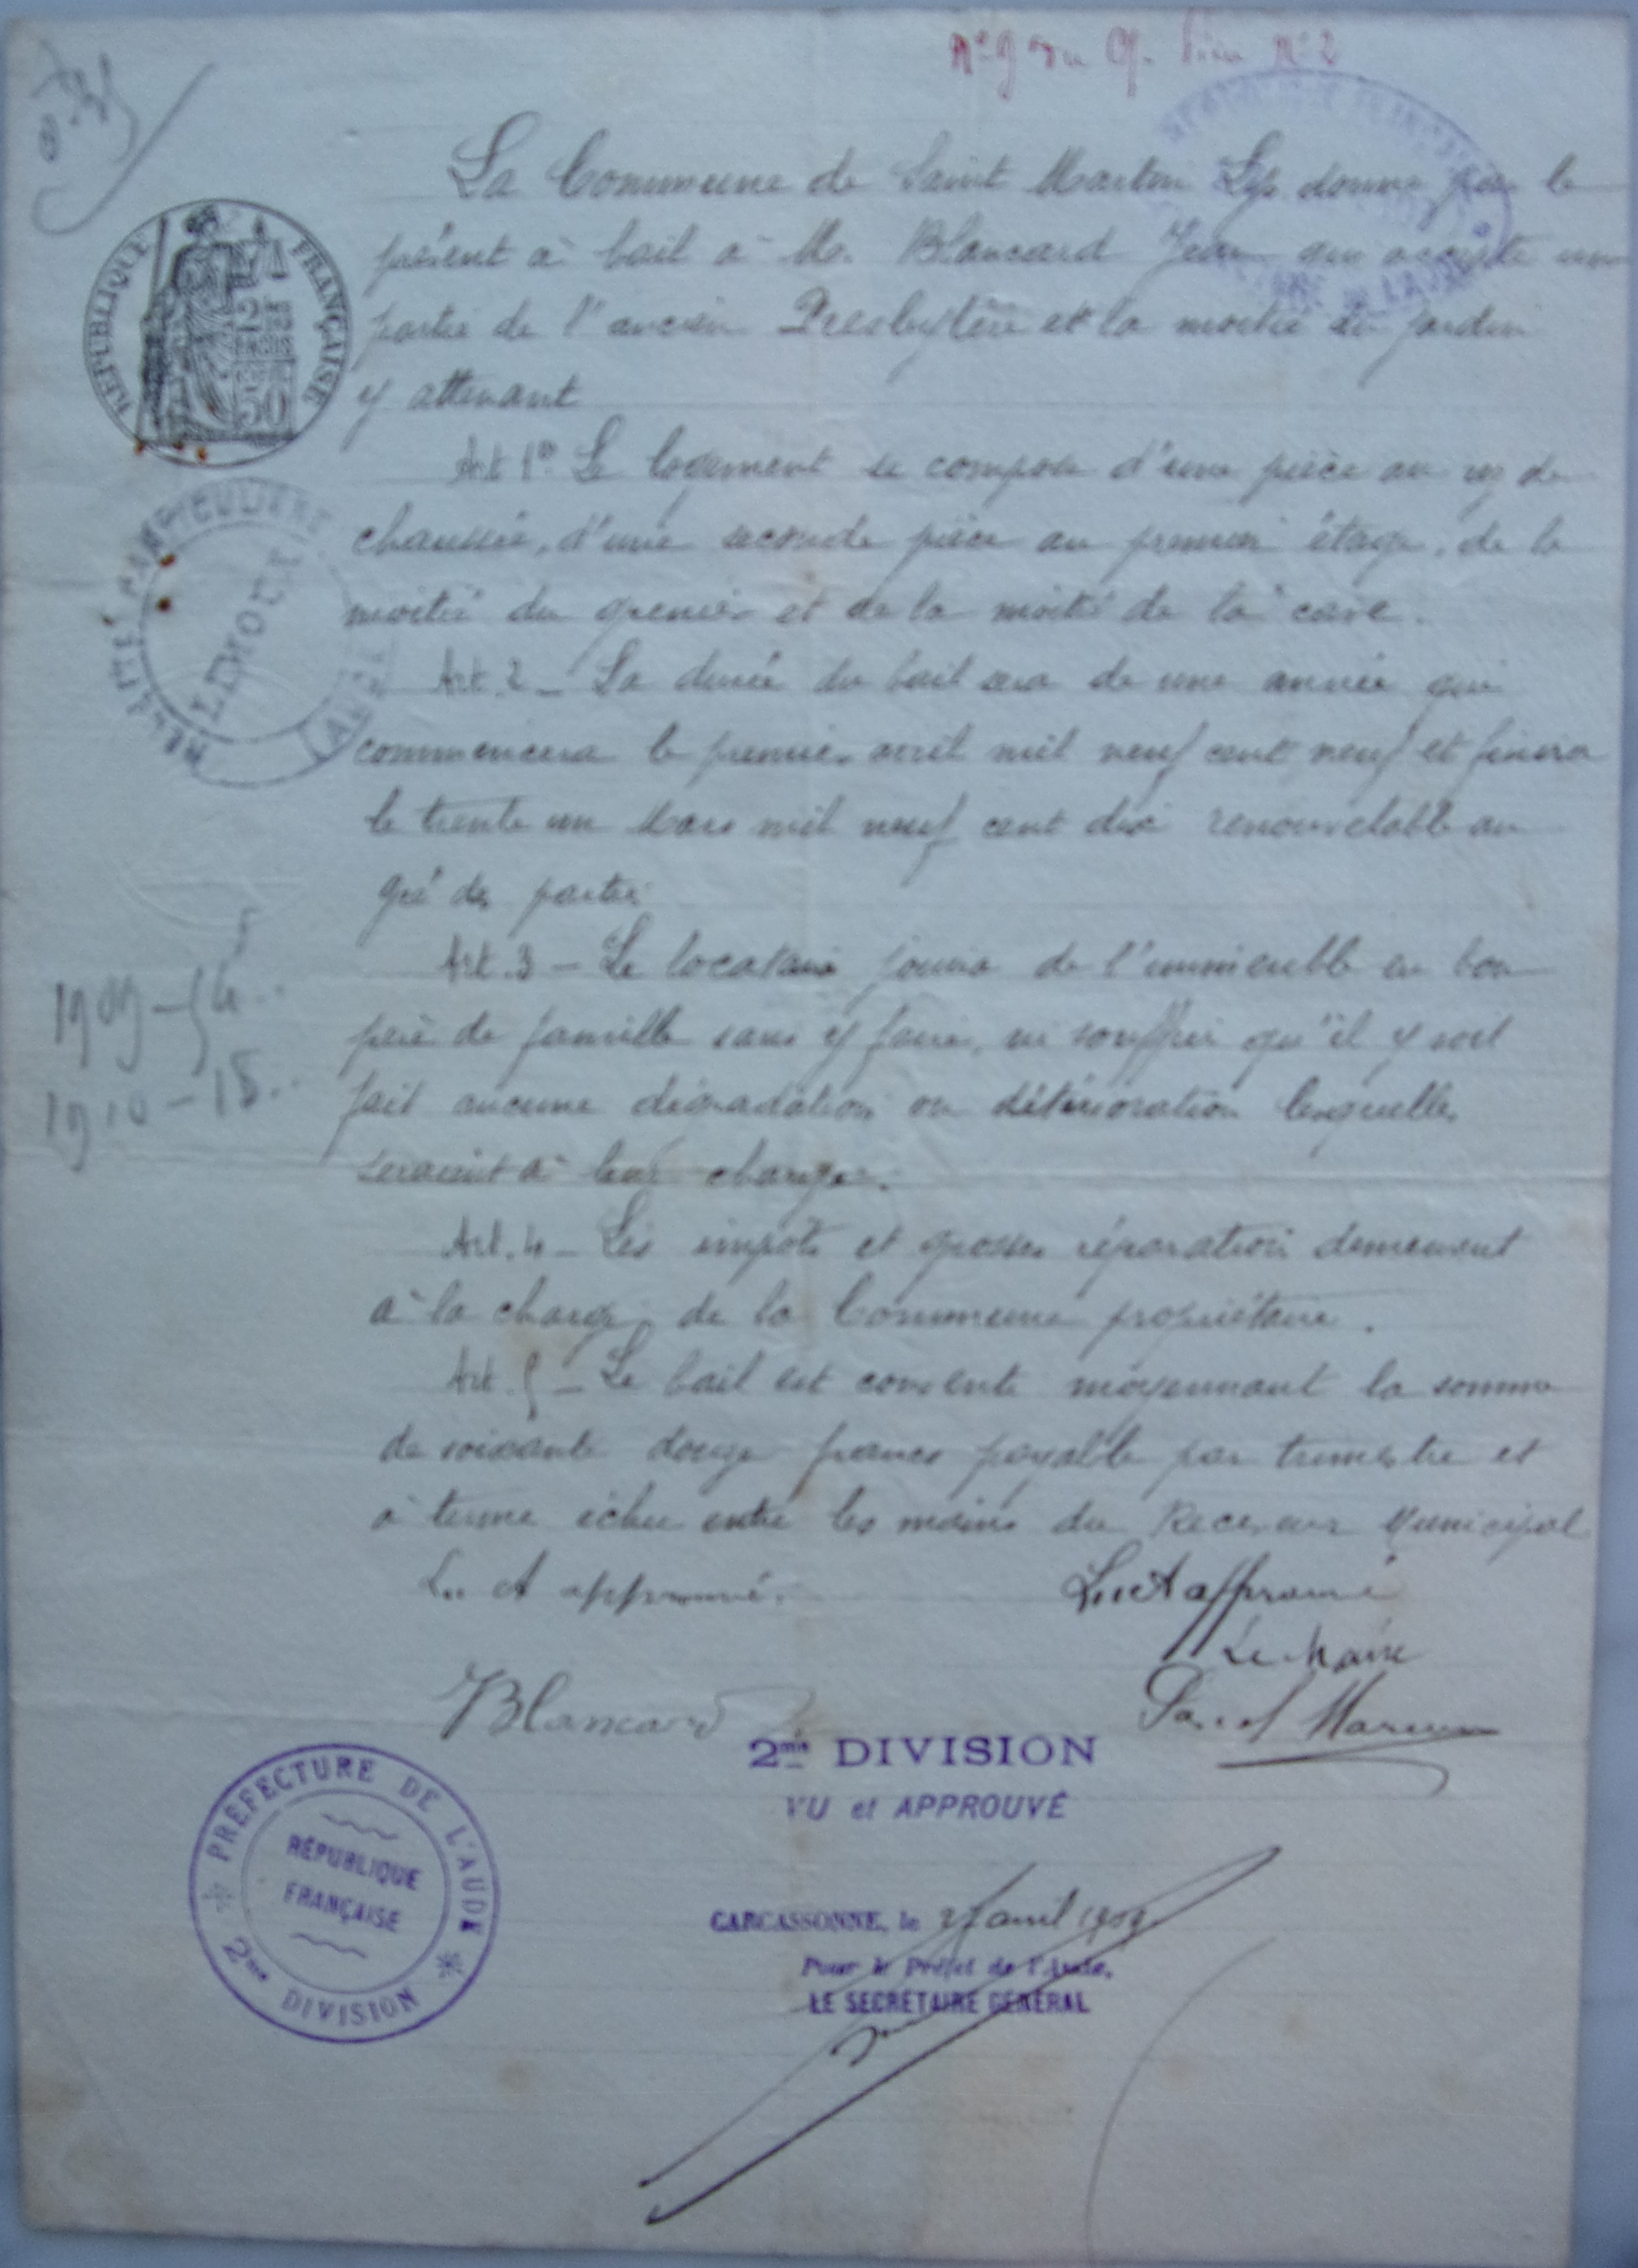 N° 9 du N° 2
La Commune de Saint Martin Lys donne par le
présent à bail à M. Blancard Jean qui accepte une
partie de l'ancien Presbytère et la moitié du jardin
y attenant
RÉPUBLIQUE FRANÇAISE
50
Art 1er Le logement se compose d'une pièce au rez de
chaussée, d'une seconde pièce au premier étage, de la
moitié du grenier et de la moitié de la cave.
Art. 2 – La durée du bail sera de une année qui
commencera le premier avril mil neuf cent neuf et finira
le trente un Mars mil neuf cent dix renouvelable au
gré des parties
Art. 3 – Le locataire jouira de l'immeuble en bon
père de famille sans y faire, ni souffrir qu'il y soit
fait aucune dégradation ou détérioration lesquelles
seraient à leur charge.
1909 – 54..
1910 – 18..
Art. 4 – Les impots et grosses réparations demeurent
à la charge de la Commune propriétaire.
Art. 5 – Le bail est consenti moyennant la somme
de soixante douze francs payable par trimestre et
à terme échu entre les mains du Receveur Municipal
Lu et approuvé. Lu et approuvé
Le Maire
Blancard
2me DIVISION
VU et APPROUVÉ
PRÉFECTURE DE L'AUDE
RÉPUBLIQUE
FRANÇAISE
2me DIVISION
CARCASSONNE, le 27 avril 1909
Pour le Préfet de l'Aude,
LE SECRÉTAIRE GÉNÉRAL